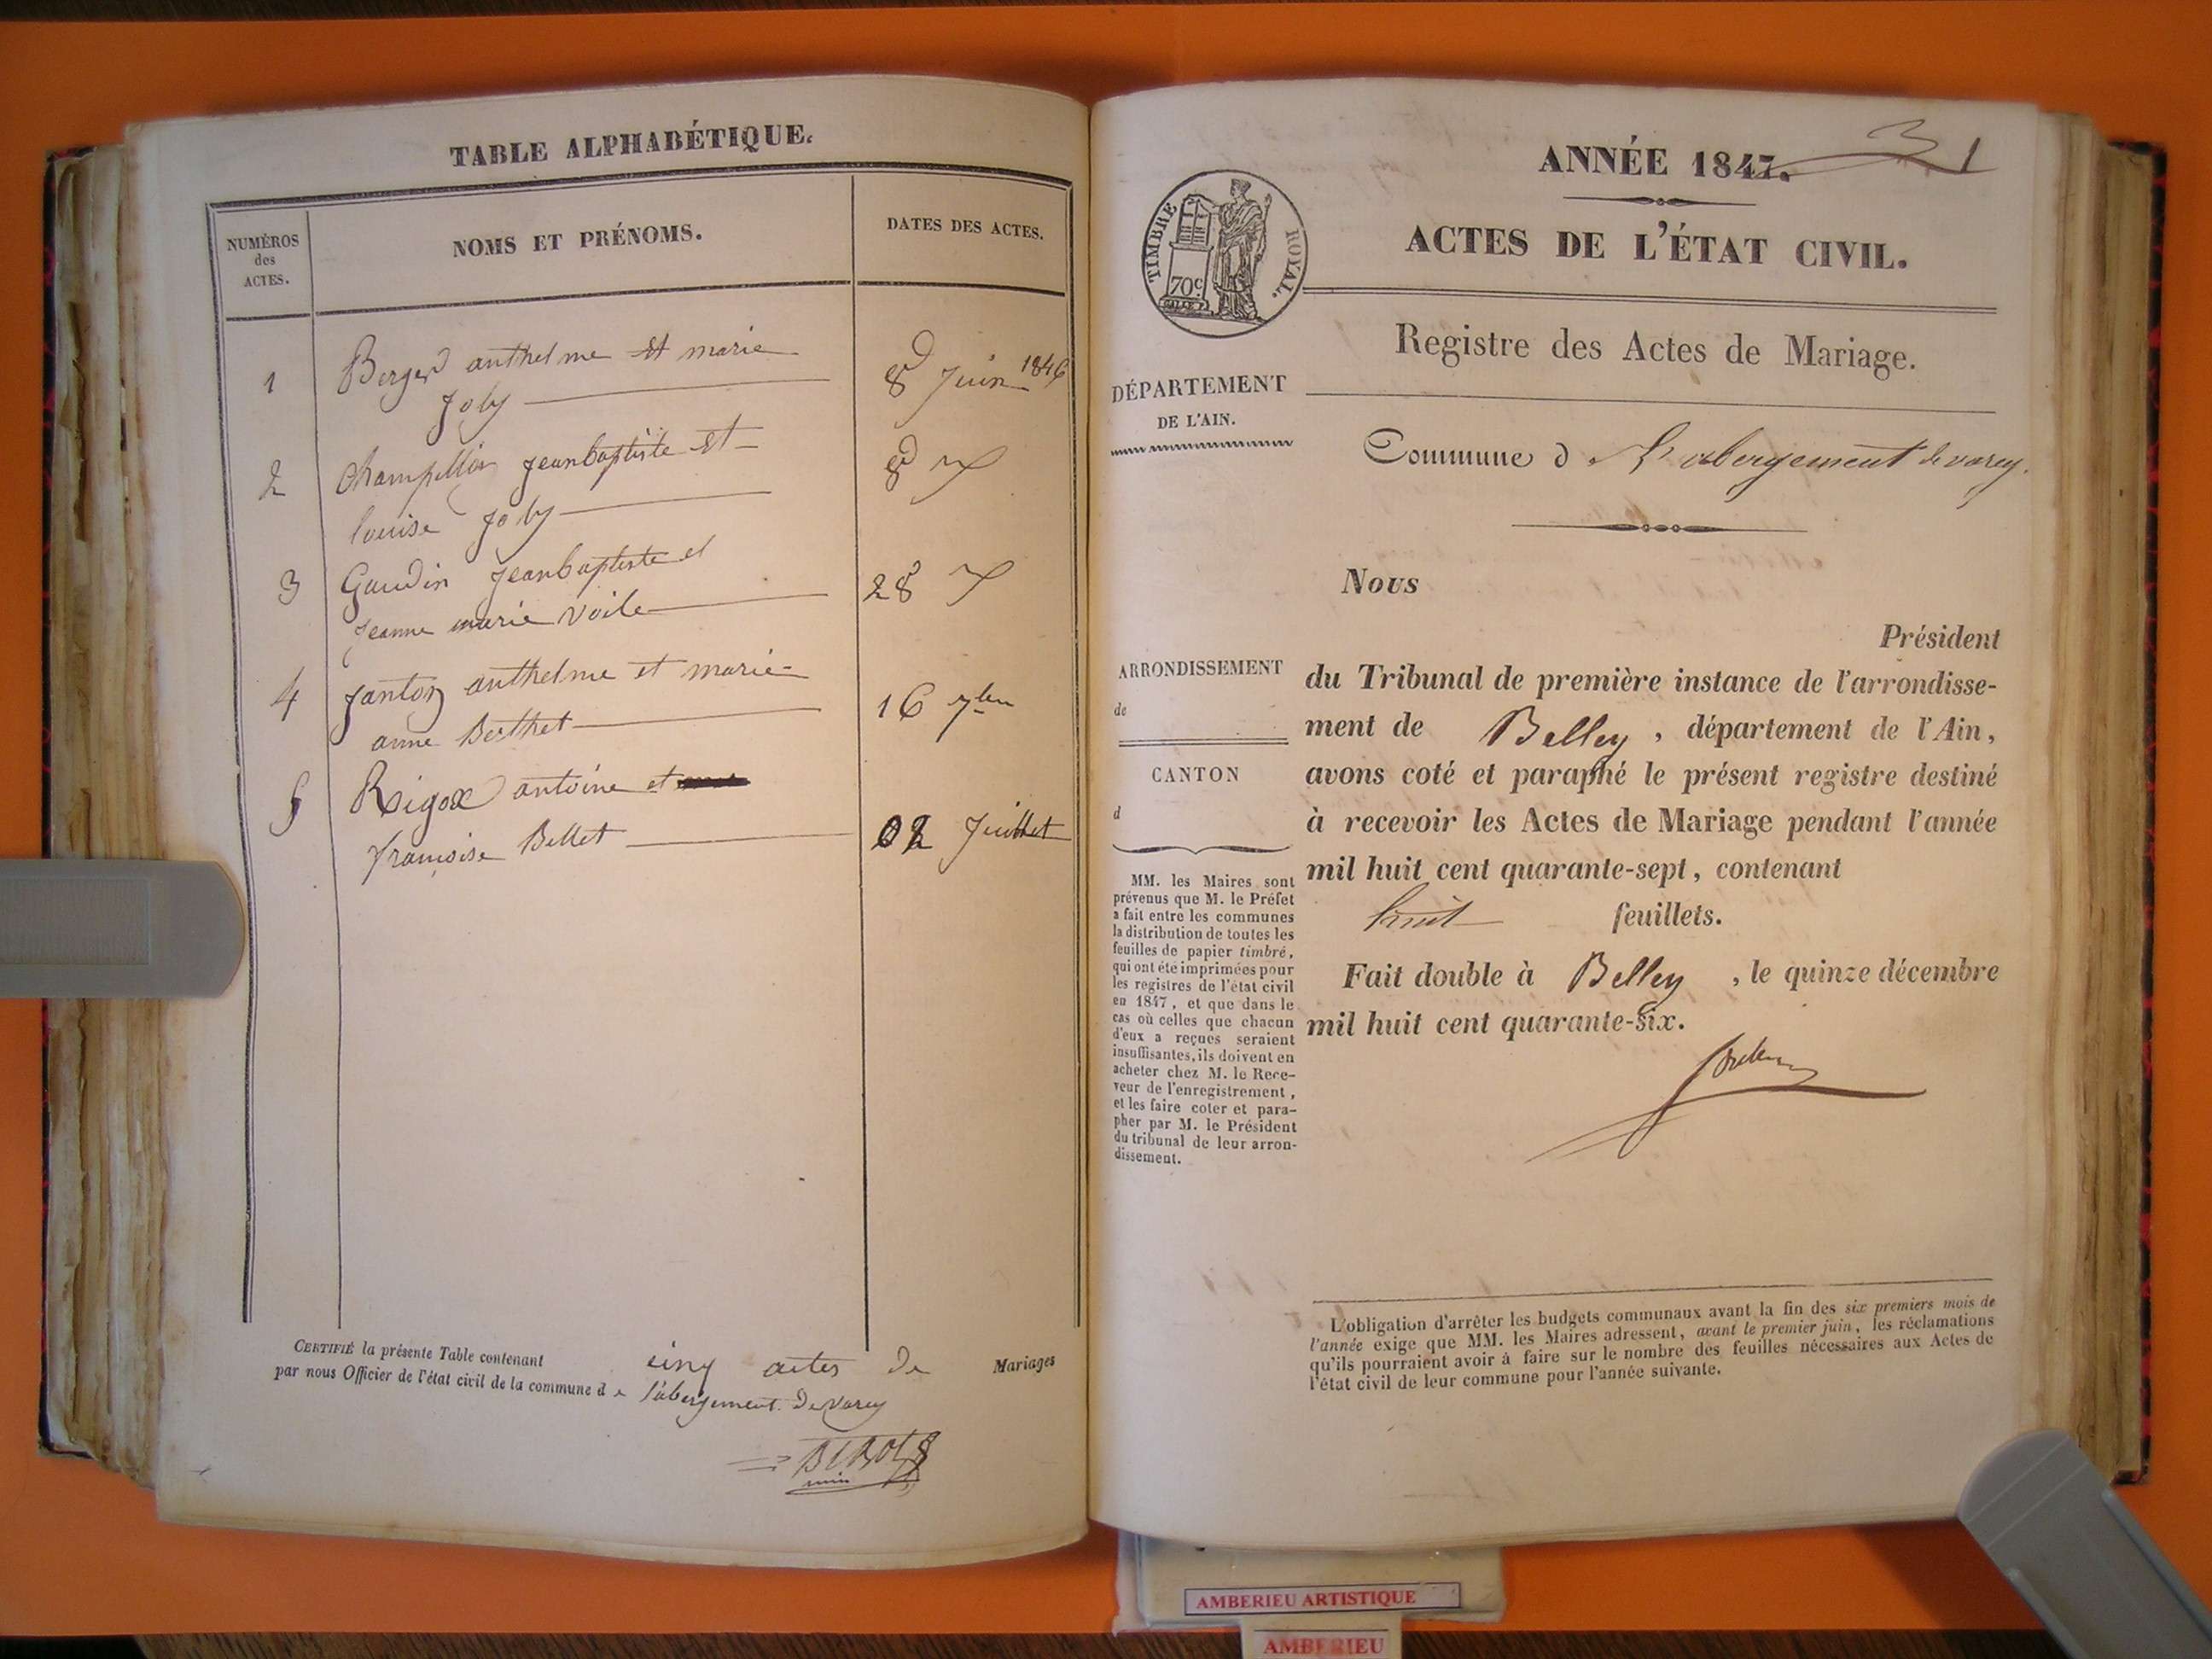 TABLE ALPHABÉTIQUE.
NUMÉROS
des
ACTES.
NOMS ET PRÉNOMS.
DATES DES ACTES.
1 Berger anthelme et marie 8 Juin 1846
Joly
2 Champillon Jean baptiste et 8
louise Joly
3 Gaudin Jean baptiste et 28
Jeanne marie Voile
4 Janton anthelme et marie 16 7bre
anne Berthet
5 Rigox antoine et
françoise Billet 02 Juillet
CERTIFIÉ la présente Table contenant cinq actes de Mariages
par nous Officier de l'état civil de la commune d e l'abergement de varey
ANNÉE 1847.
31
ACTES DE L'ÉTAT CIVIL.
TIMBRE ROYAL.
70c
Registre des Actes de Mariage.
DÉPARTEMENT
DE L'AIN.
Commune d L'abergement de varey.
Nous
Président
du Tribunal de première instance de l'arrondisse-
ment de Belley, département de l'Ain,
avons coté et paraphé le présent registre destiné
à recevoir les Actes de Mariage pendant l'année
mil huit cent quarante-sept, contenant
huit feuillets.
Fait double à Belley, le quinze décembre
mil huit cent quarante-six.
ARRONDISSEMENT
de
CANTON
d
MM. les Maires sont
prévenus que M. le Préfet
a fait entre les communes
la distribution de toutes les
feuilles de papier timbré,
qui ont été imprimées pour
les registres de l'état civil
en 1847, et que dans le
cas où celles que chacun
d'eux a reçues seraient
insuffisantes, ils doivent en
acheter chez M. le Rece-
veur de l'enregistrement,
et les faire coter et para-
pher par M. le Président
du tribunal de leur arron-
dissement.
L'obligation d'arrêter les budgets communaux avant la fin des six premiers mois de
l'année exige que MM. les Maires adressent, avant le premier juin, les réclamations
qu'ils pourraient avoir à faire sur le nombre des feuilles nécessaires aux Actes de
l'état civil de leur commune pour l'année suivante.
AMBERIEU ARTISTIQUE
AMBERIEU